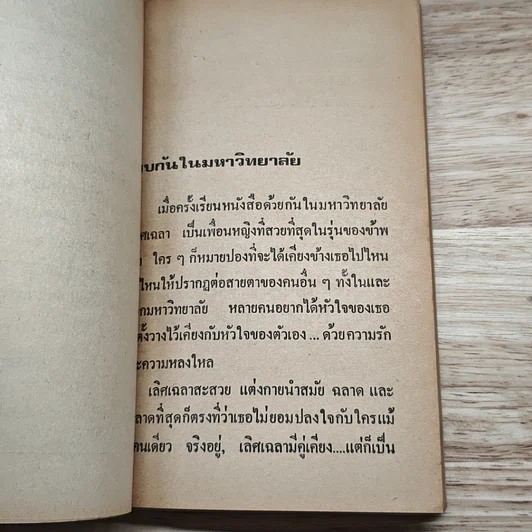 บกันในมหาวิทยาลัย
เมื่อครั้งเรียนหนังสือด้วยกันในมหาวิทยาลัย
ศเฉลา เป็นเพื่อนหญิงที่สวยที่สุดในรุ่นของข้าพ
ใคร ๆ ก็หมายปองที่จะได้เคียงข้างเธอไปไหน
ไหนให้ปรากฏต่อสายตาของคนอื่น ๆ ทั้งในและ
กมหาวิทยาลัย หลายคนอยากได้หัวใจของเธอ
ตั้งวางไว้เคียงกับหัวใจของตัวเอง ... ด้วยความรัก
ะความหลงใหล
เลิศเฉลาสะสวย แต่งกายนำสมัย ฉลาด และ
ลาดที่สุดก็ตรงที่ว่าเธอไม่ยอมปลงใจกับใครแม้
คนเดียว จริงอยู่, เลิศเฉลามีคู่เคียง....แต่ก็เป็น